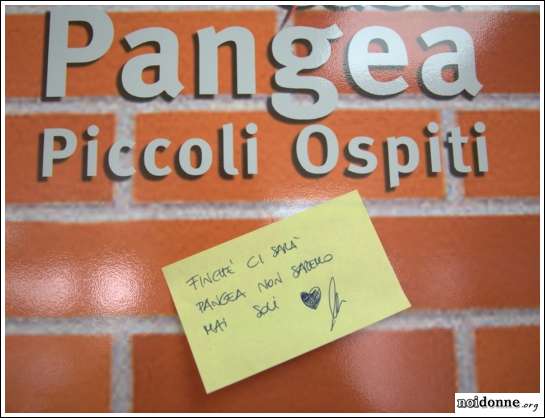 Pangea
Piccoli Ospiti
FINCHÉ CI SARÀ
PANGEA NON SAREMO
MAI SOLI
noidonne.org